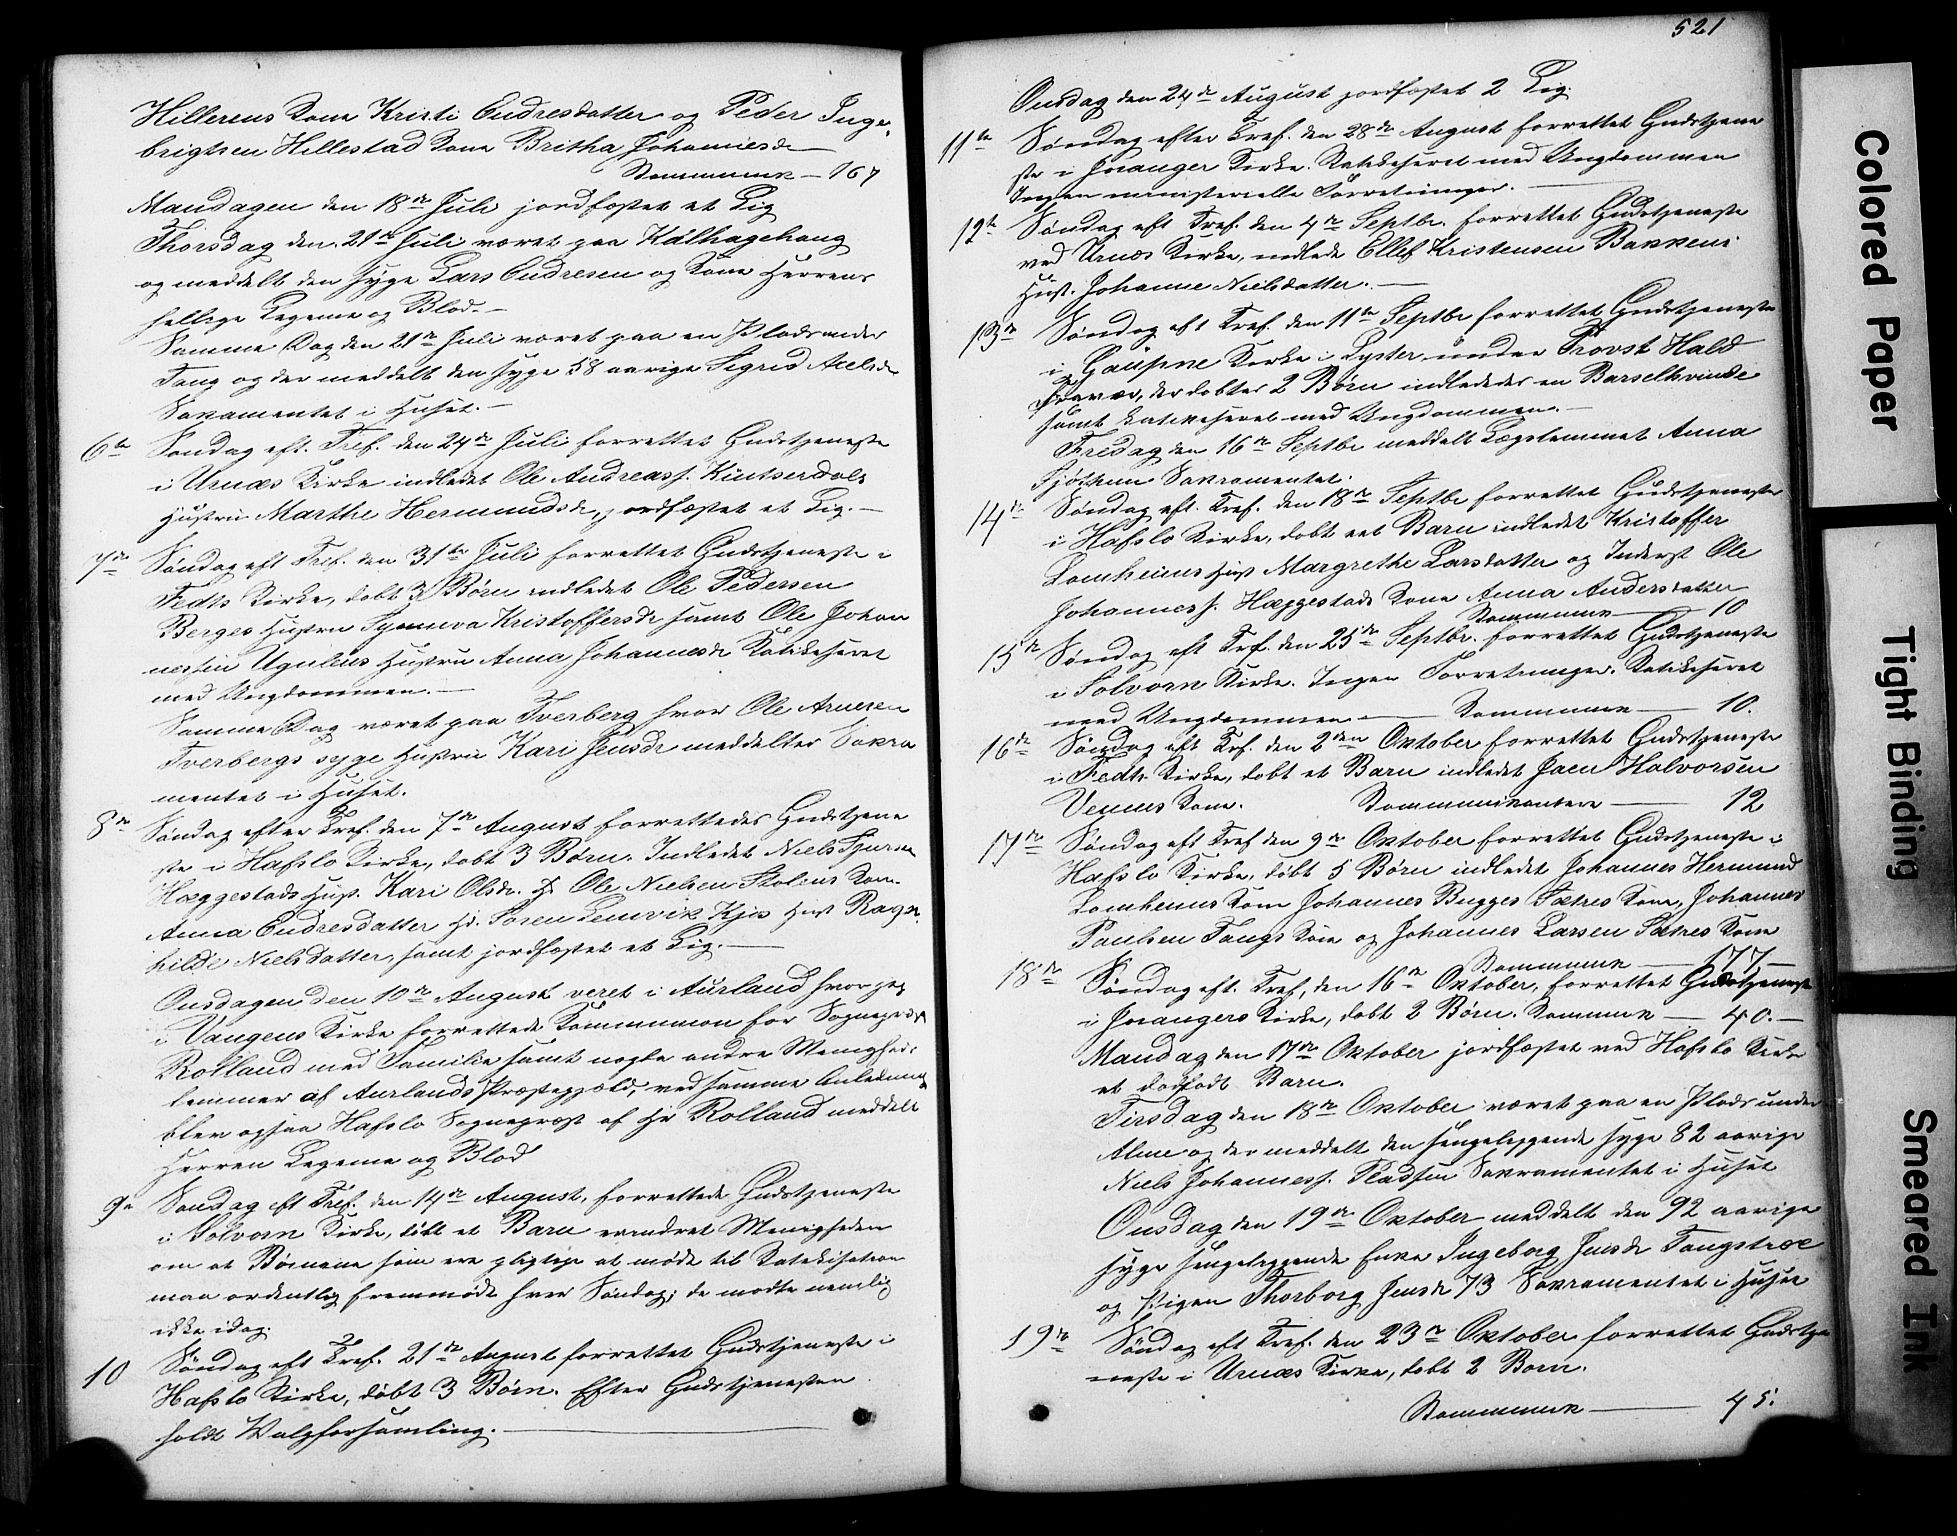 Hillerens Kone Kristi Endresdatter og Peder Inge,
brigtsen Hillestad Kone Britha Johannesdr
Kommunik — 167
Mandagen den 18de Juli jordfæstet et Lig
Thorsdag den 21de Juli været paa Kalhagehaug
og meddelt den syge Lars Endresen og Kone Herrens
hellige Legeme og Blod. —
Samme Dag den 21de Juli været paa en Plads under
Tang og der meddelt den syge 58 aarige Sigrid Nielsdr
Sakramentet i Huset. —
6te Søndag eft. Tref. den 24de Juli forrettet Gudstjeneste
i Urnæs Kirke indledet Ole Andreass. Kintserdals
Hustru Marthe Hermundsdr, jordfæstet et Lig. —
7de Søndag eft Tref. den 31te Juli forrettet Gudstjeneste i
Fedts Kirke, døbt 3 Børn indledet Ole Pedersen
Berges Hustru Synneva Kristoffersdr samt Ole Johan
nessen Ugulens Hustru Anna Johannesdr Katikeseret
med Ungdommen. —
Samme Dag været paa Tverberg hvor Ole Arnesen
Tverbergs syge Hustru Kari Jensdr meddeltes Sakra
mentet i Huset.
8de Søndag efter Tref. den 7de August forrettedes Gudstjene
ste i Hafslo Kirke, døbt 3 Børn. Indledet Niels
Hæggestads Hust. Kari Olsdr. Ole Nielsen Stolens Kone
Anna Endresdatter Søren Lemvik Kjos Hust Ragn
hilde Nielsdatter, samt jordfæstet et Lig. —
Onsdagen den 10de August veret i Aurland hvor jeg
i Vangens Kirke forrettede Kommunion for Sognepræst
Rolland med Familie samt nogle andre Menigheds
lemmer af Aurlands Præstegjæld, ved samme Anledning
blev ogsaa Hafslo Sognepræst af Hr Rolland meddelt
Herren Legeme og Blod
9de Søndag eft Tref. den 14de August, forrettede Gudstjeneste
i Solvorn Kirke, døbt et Barn erindret Menigheden
om at Børnene som ere pligtige at møde til Katekisation
maa ordentlig fremmøde hver Søndag; de mødte nemlig
ikke idag.
10 Søndag eft Tref. 21de August forrettet Gudstjeneste i
Hafslo Kirke, døbt 3 Børn. Efter Gudstjenesten
holdt Valgforsamling. —
521
Onsdag den 24de August jordfæstet 2 Lig.
11te Søndag efter Tref. den 28de August forrettet Gudstjene
ste i Joranger Kirke. Katikeseret med Ungdommen
Ingen ministerielle Forretninger. —
12te Søndag eft Tref. den 4de Septbr. forrettet Gudstjeneste
ved Urnæs Kirke, indlede Ellef Kristensen Bakkens
Hust. Johanne Nielsdatter. —
13de Søndag eft Tref. den 11te Septbr forrettet Gudstjeneste
i Gaupne Kirke i Lyster under Provst Halds
Fravær, der døbtes 2 Børn indlededes en Barselkvinde
samt katekeseret med Ungdommen. —
Fredag den 16de Septbr meddelt Lægslemmet Anna
Sjøthun Sakramentet.
14de Søndag eft. Tref. den 18de Septbr forrettet Gudstjeneste
i Hafslo Kirke, døbt eet Barn indledet Kristoffer
Lomheims Hust Margrethe Larsdatter og Inderst Ole
Johanness. Hæggestads Kone Anna Andersdatter
Kommunik — 10
15de Søndag eft Tref. den 25de Septbr. forrettet Gudstjeneste
i Solvorn Kirke. Ingen Forretninger. Katikeseret
med Ungdommen — Kommunik — 10.
16de Søndag eft Tref. den 2den Oktober forrettet Gudstjeneste
i Fedts Kirke, døbt et Barn indledet Jaen Halvorsen
Venes Kone. Kommunikantere — 12
17de Søndag eft Tref den 9de Oktober forrettet Gudstjeneste i
Hafslo Kirke, døbt 5 Børn indledet Johannes Hermund
Lomheims Kone Johannes Bugges Sætres Kone, Johannes
Paulsen Tangs Kone og Johannes Larsen Sætres Kone
Kommunik — 177
18de Søndag eft. Tref, den 16de Oktober, forrettet Gudstjeneste
i Jorangers Kirke, døbt 2 Børn. Kommunik — 40. —
Mandag den 17de Oktober jordfæstet ved Hafslo Kirke
et dødfødt Barn.
Tirsdag den 18de Oktober været paa en Plads under
Alme og der meddelt den sengeliggende syge 82 aarige
Niels Johanness. Pladsen Sakramentet i Huset
Onsdag den 19de Oktober meddelt den 92 aarige
syge sengeliggende Enke Ingeborg Jensdr Tangstræe
og Pigen Thorborg Jensdr 73 Sakramentet i Huset
19de Søndag eft Tref. den 23de Oktober forrettet Gudstje
neste i Urnæs Kirke, døbt 2 Børn.
Kommunik — 45.
Colored Paper
Tight Binding
Smeared Ink